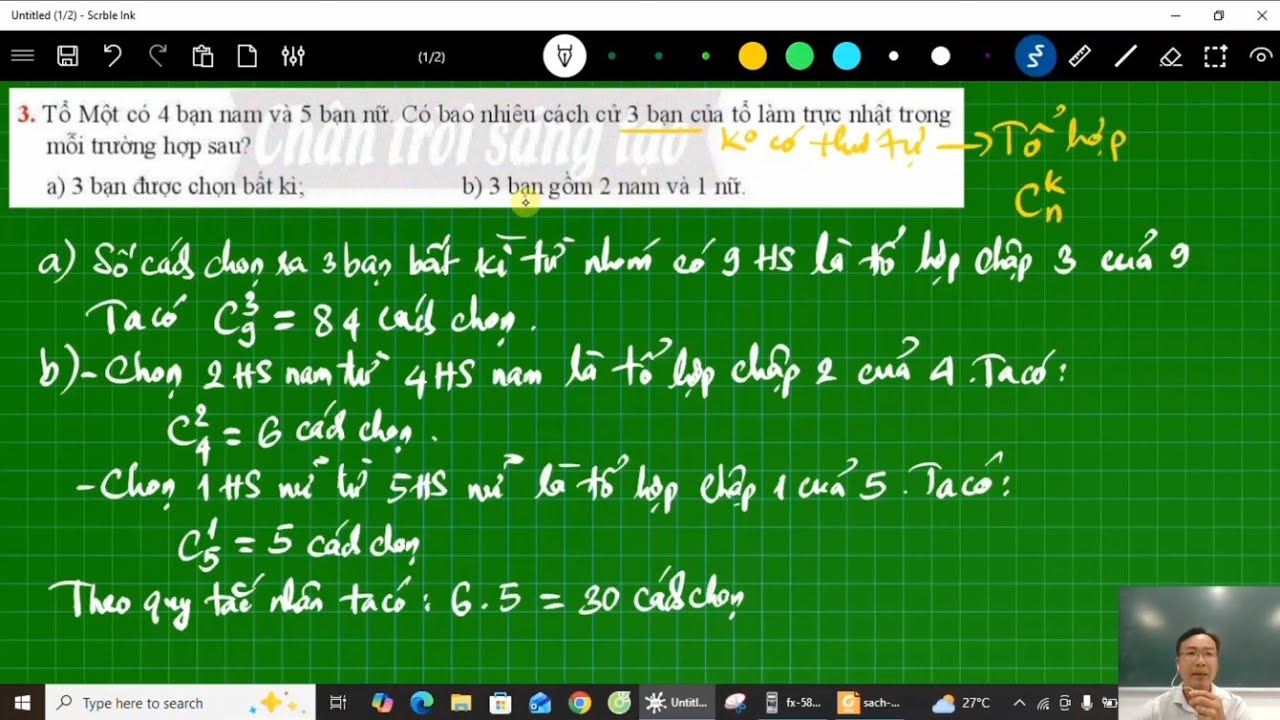 Untitled (1/2) - Scrble Ink
(1/2)
3. Tổ Một có 4 bạn nam và 5 bạn nữ. Có bao nhiêu cách cử 3 bạn của tổ làm trực nhật trong
mỗi trường hợp sau?
a) 3 bạn được chọn bất kì; b) 3 bạn gồm 2 nam và 1 nữ.
Chân trời sáng tạo
Ko có thứ tự → Tổ hợp
Cₙᵏ
a) Số cách chọn ra 3 bạn bất kì từ nhóm có 9 HS là tổ hợp chập 3 của 9
Ta có C₉³ = 84 cách chọn.
b) - Chọn 2 HS nam từ 4 HS nam là tổ hợp chập 2 của 4. Ta có:
C₄² = 6 cách chọn.
- Chọn 1 HS nữ từ 5 HS nữ là tổ hợp chập 1 của 5. Ta có:
C₅¹ = 5 cách chọn
Theo quy tắc nhân ta có: 6.5 = 30 cách chọn
Type here to search
Untitl...
fx-58...
sach-...
27°C